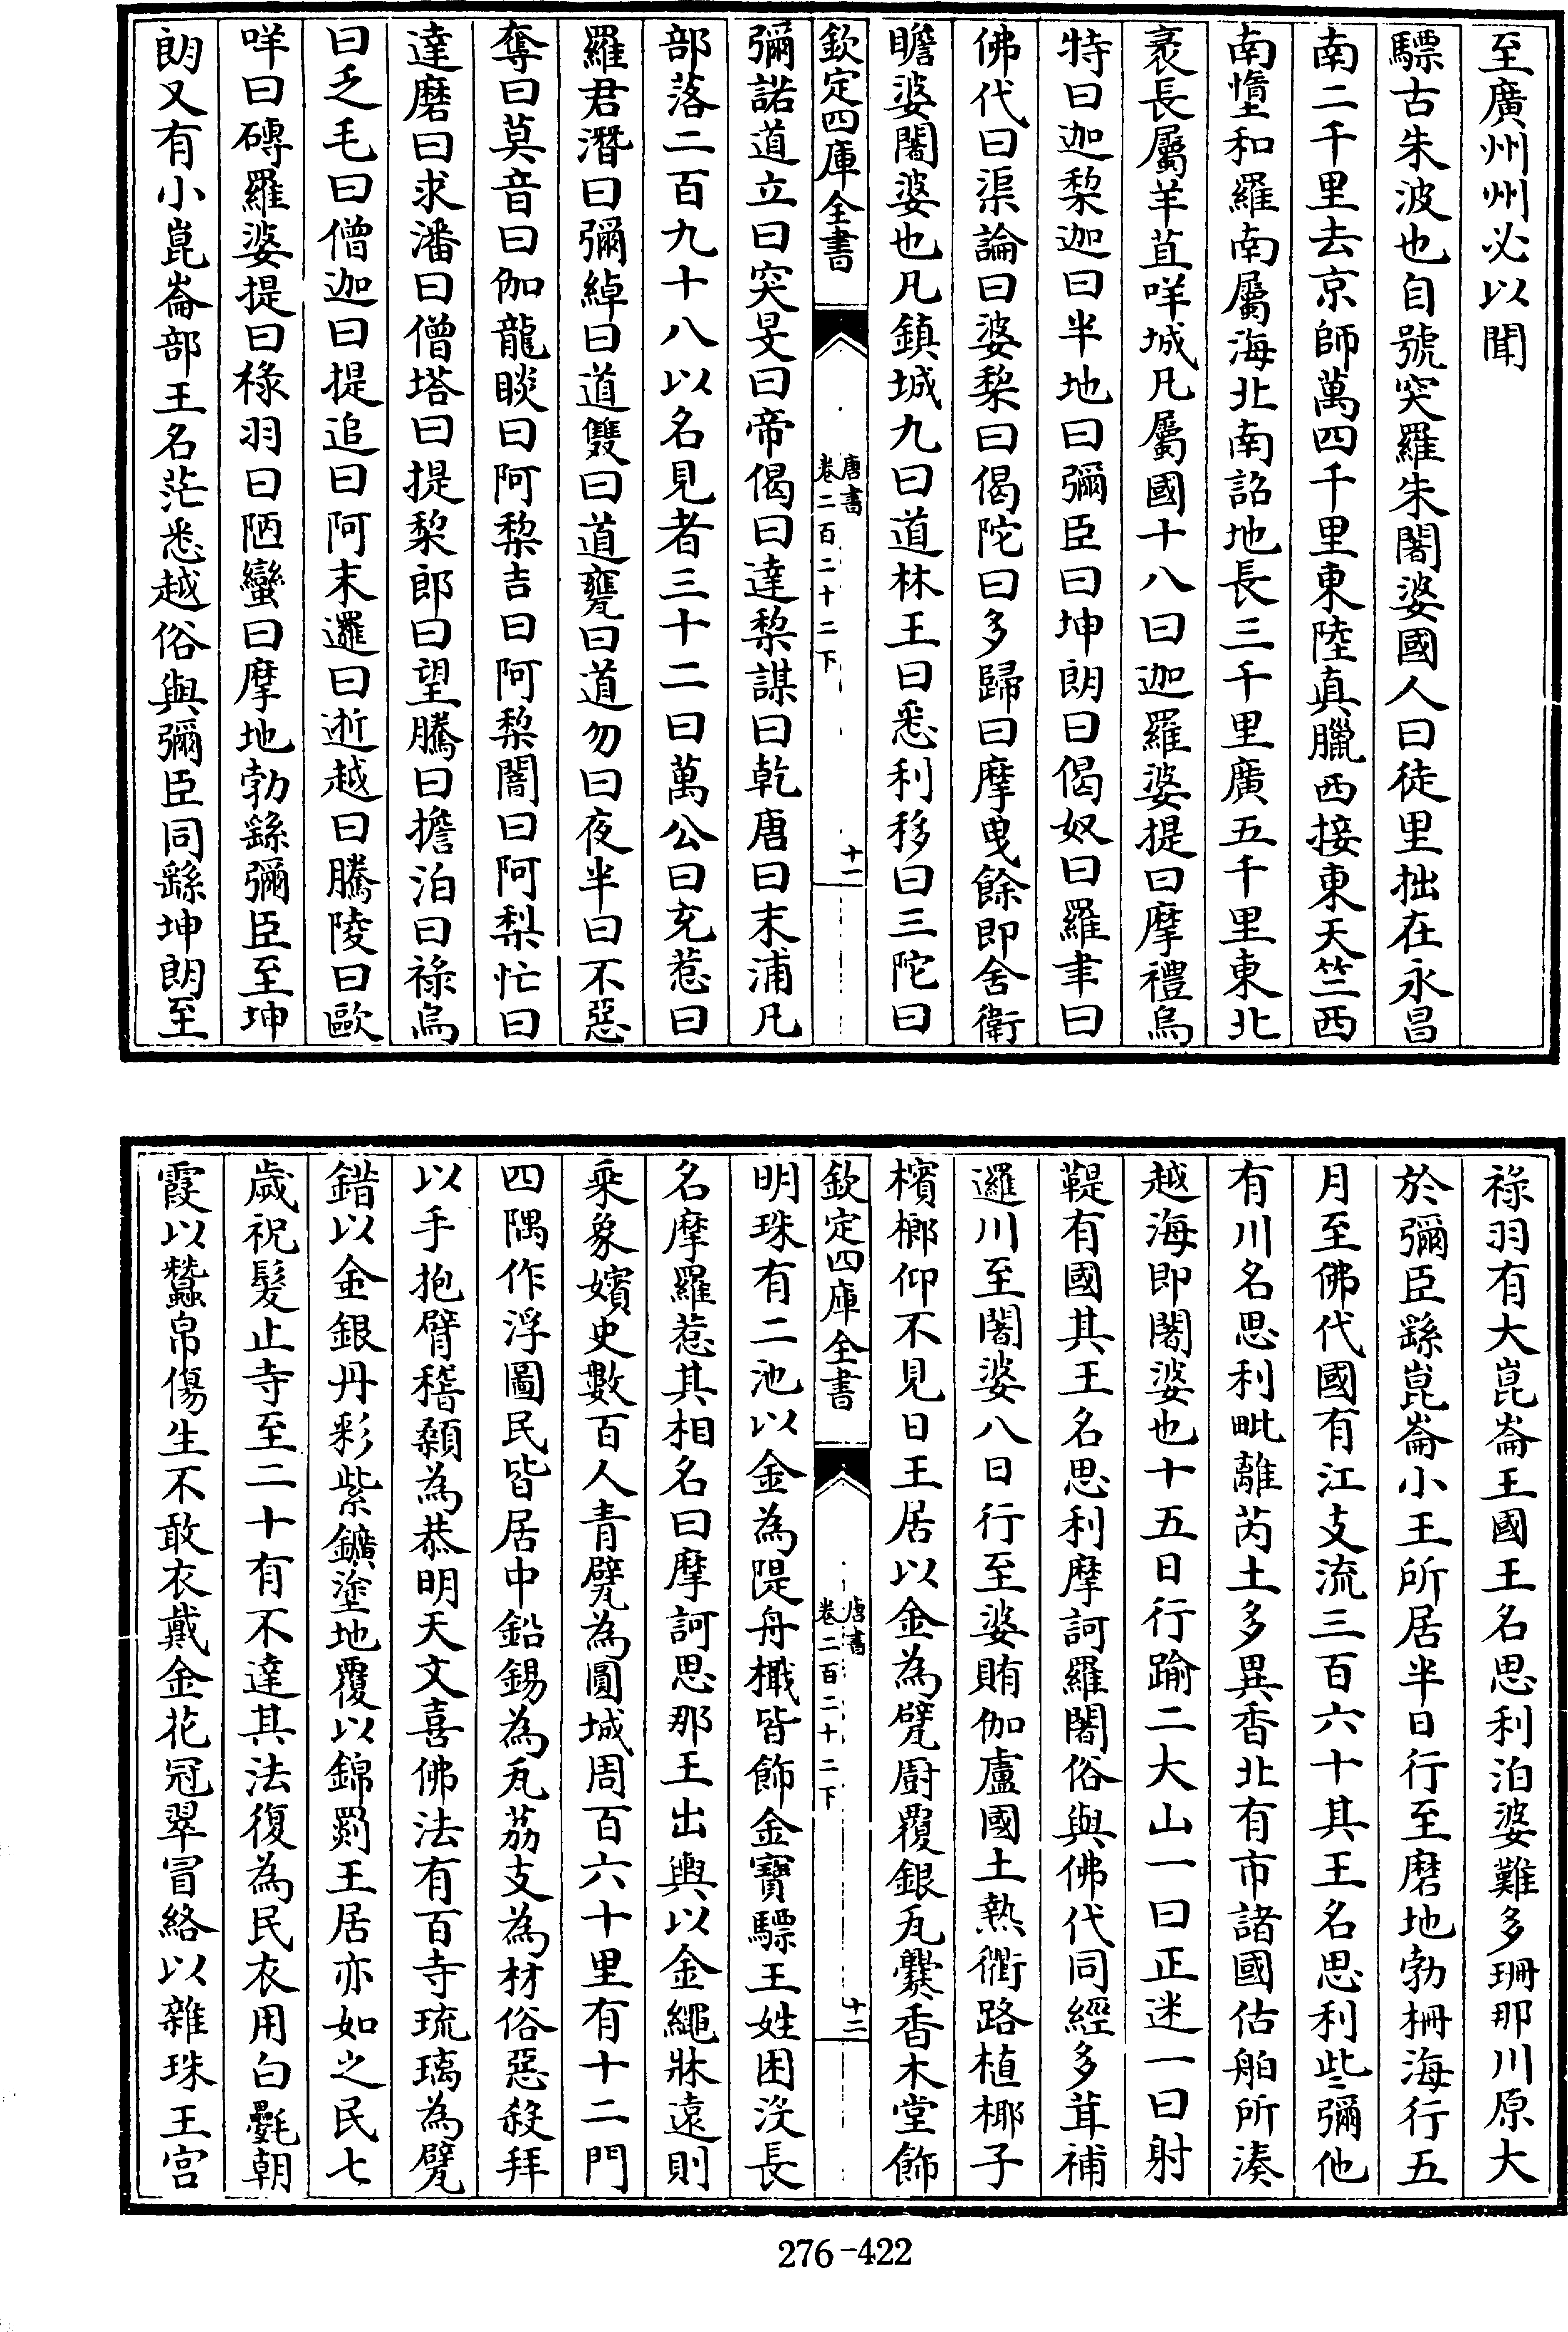 至廣州州必以聞
驃古朱波也自號突羅朱闍婆國人曰徒里拙在永昌
南二千里去京師萬四千里東陸真臘西接東天竺西
南墮和羅南屬海北南詔地長三千里廣五千里東北
袤長屬羊苴咩城凡屬國十八曰迦羅婆提曰摩禮烏
特曰迦梨迦曰半地曰彌臣曰坤朗曰偈奴曰羅聿曰
佛代曰渠論曰婆梨曰偈陀曰多歸曰摩曳餘即舍衛
瞻婆闍婆也凡鎮城九曰道林王曰悉利移曰三陀曰
欽定四庫全書
唐書
卷二百二十二下
十一
彌諾道立曰突旻曰帝偈曰達梨謀曰乾唐曰末浦凡
部落二百九十八以名見者三十二曰萬公曰充惹曰
羅君潛曰彌綽曰道雙曰道甕曰道勿曰夜半曰不惡
奪曰莫音曰伽龍睒曰阿梨吉曰阿梨闍曰阿梨忙曰
達磨曰求潘曰僧塔曰提梨郎曰望騰曰擔泊曰祿烏
曰乏毛曰僧迦曰提追曰阿末邏曰逝越曰騰陵曰歐
咩曰磚羅婆提曰祿羽曰陋蠻曰摩地勃繇彌臣至坤
朗又有小崑崙部王名茫悉越俗與彌臣同繇坤朗至
祿羽有大崑崙王國王名思利泊婆難多珊那川原大
於彌臣繇崑崙小王所居半日行至磨地勃柵海行五
月至佛代國有江支流三百六十其王名思利些彌他
有川名思利毗離芮土多異香北有市諸國估舶所湊
越海即闍婆也十五日行踰二大山一曰正迷一曰射
鞮有國其王名思利摩訶羅闍俗與佛代同經多茸補
邏川至闍婆八日行至婆賄伽盧國土熱衢路植椰子
檳榔仰不見日王居以金為甓廚覆銀瓦爨香木堂飾
欽定四庫全書
唐書
卷二百二十二下
十二
明珠有二池以金為隄舟檝皆飾金寶驃王姓困沒長
名摩羅惹其相名曰摩訶思那王出輿以金繩牀遠則
乘象嬪史數百人青甓為圓城周百六十里有十二門
四隅作浮圖民皆居中鉛錫為瓦荔支為材俗惡殺拜
以手抱臂稽顙為恭明天文喜佛法有百寺琉璃為甓
錯以金銀丹彩紫鑛塗地覆以錦罽王居亦如之民七
歲祝髮止寺至二十有不達其法復為民衣用白㲲朝
霞以蠶帛傷生不敢衣戴金花冠翠冒絡以雜珠王宮
276-422